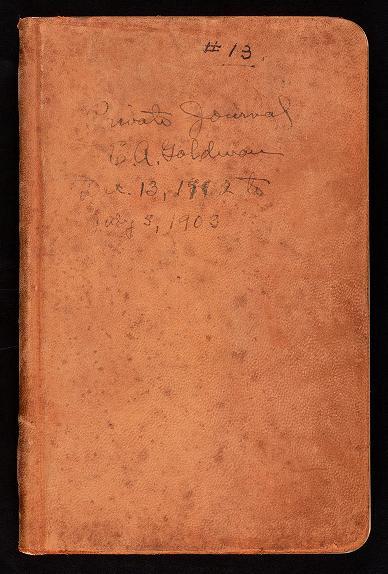 # 13
Private Journal
E. A. Goldman
Dec. 13, 1902 to
July 3, 1903